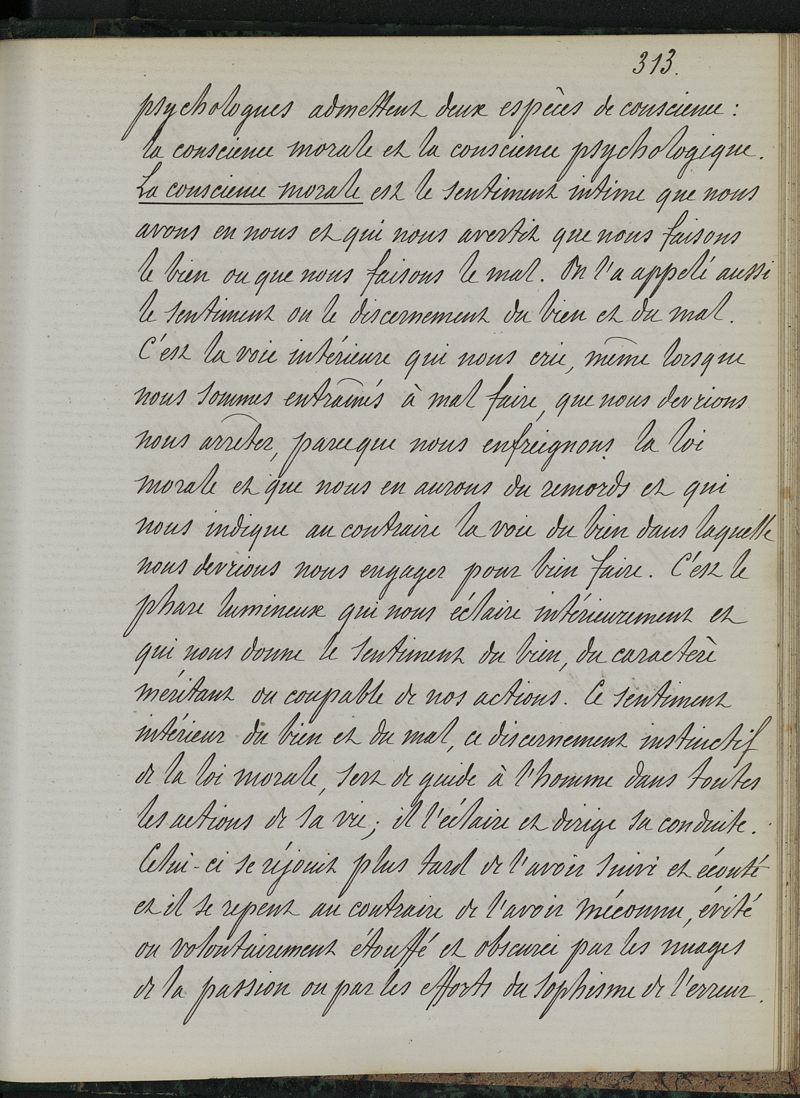 313.
psychologues admettent deux espèces de conscience :
la conscience morale et la conscience psychologique.
La conscience morale est le sentiment intime que nous
avons en nous et qui nous avertit que nous faisons
le bien ou que nous faisons le mal. On l'a appelé aussi
le sentiment ou le discernement du bien et du mal.
C'est la voie intérieure qui nous crie, même lorsque
nous sommes entraînés à mal faire, que nous devrions
nous arrêter, parceque nous enfreignons la loi
morale et que nous en aurons du remords et qui
nous indique au contraire la voie du bien dans laquelle
nous devrions nous engager pour bien faire. C'est le
phare lumineux qui nous éclaire intérieurement et
qui nous donne le sentiment du bien, du caractère
méritant ou coupable de nos actions. Ce sentiment
intérieur du bien et du mal, ce discernement instinctif
de la loi morale, sert de guide à l'homme dans toutes
les actions de sa vie ; il l'éclaire et dirige sa conduite.
Celui-ci se réjouit plus tard de l'avoir suivi et écouté
et il se repent au contraire de l'avoir méconnu, évité
ou volontairement étouffé et obscurci par les nuages
de la passion ou par les efforts du sophisme de l'erreur.